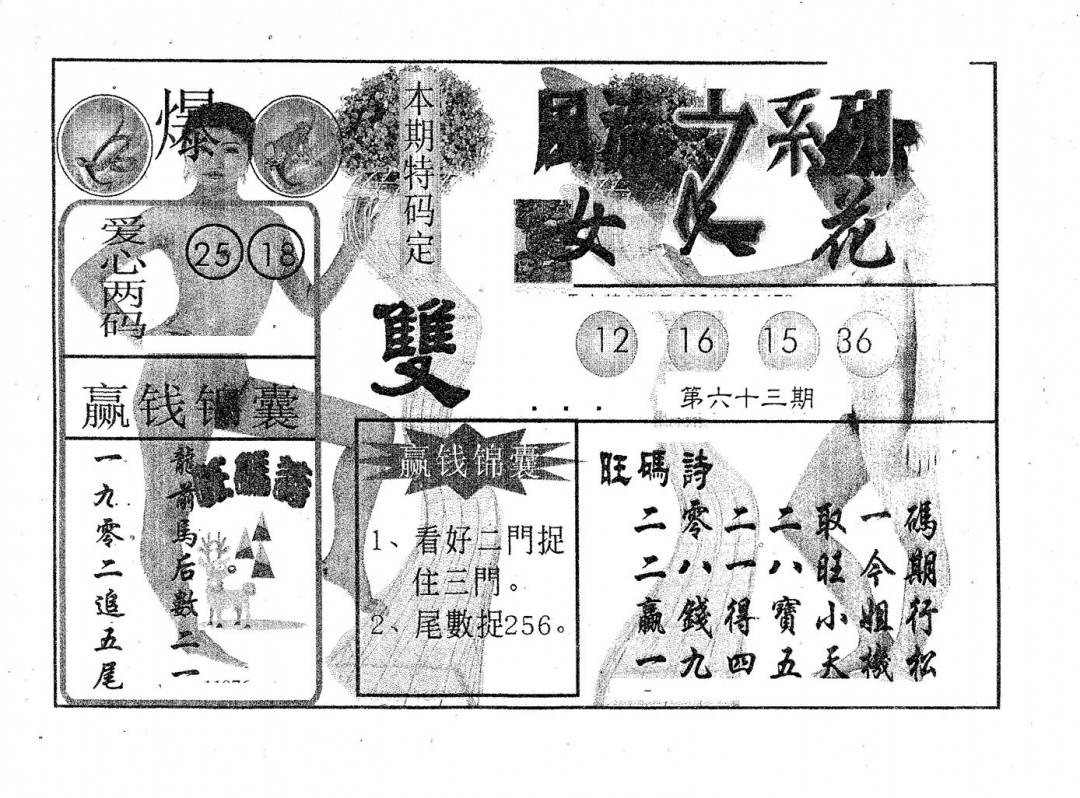 爆
爱心两码
25 18
赢钱锦囊
龍前馬后數二一
一九零二追五尾
本期特码定
雙
赢钱锦囊
1、看好二門捉
住三門。
2、尾數捉256。
系列
女人花
12 16 15 36
第六十三期
旺碼詩
二零二二取一碼
二八一八旺今期
贏錢得寶小姐行
一九四五天機松